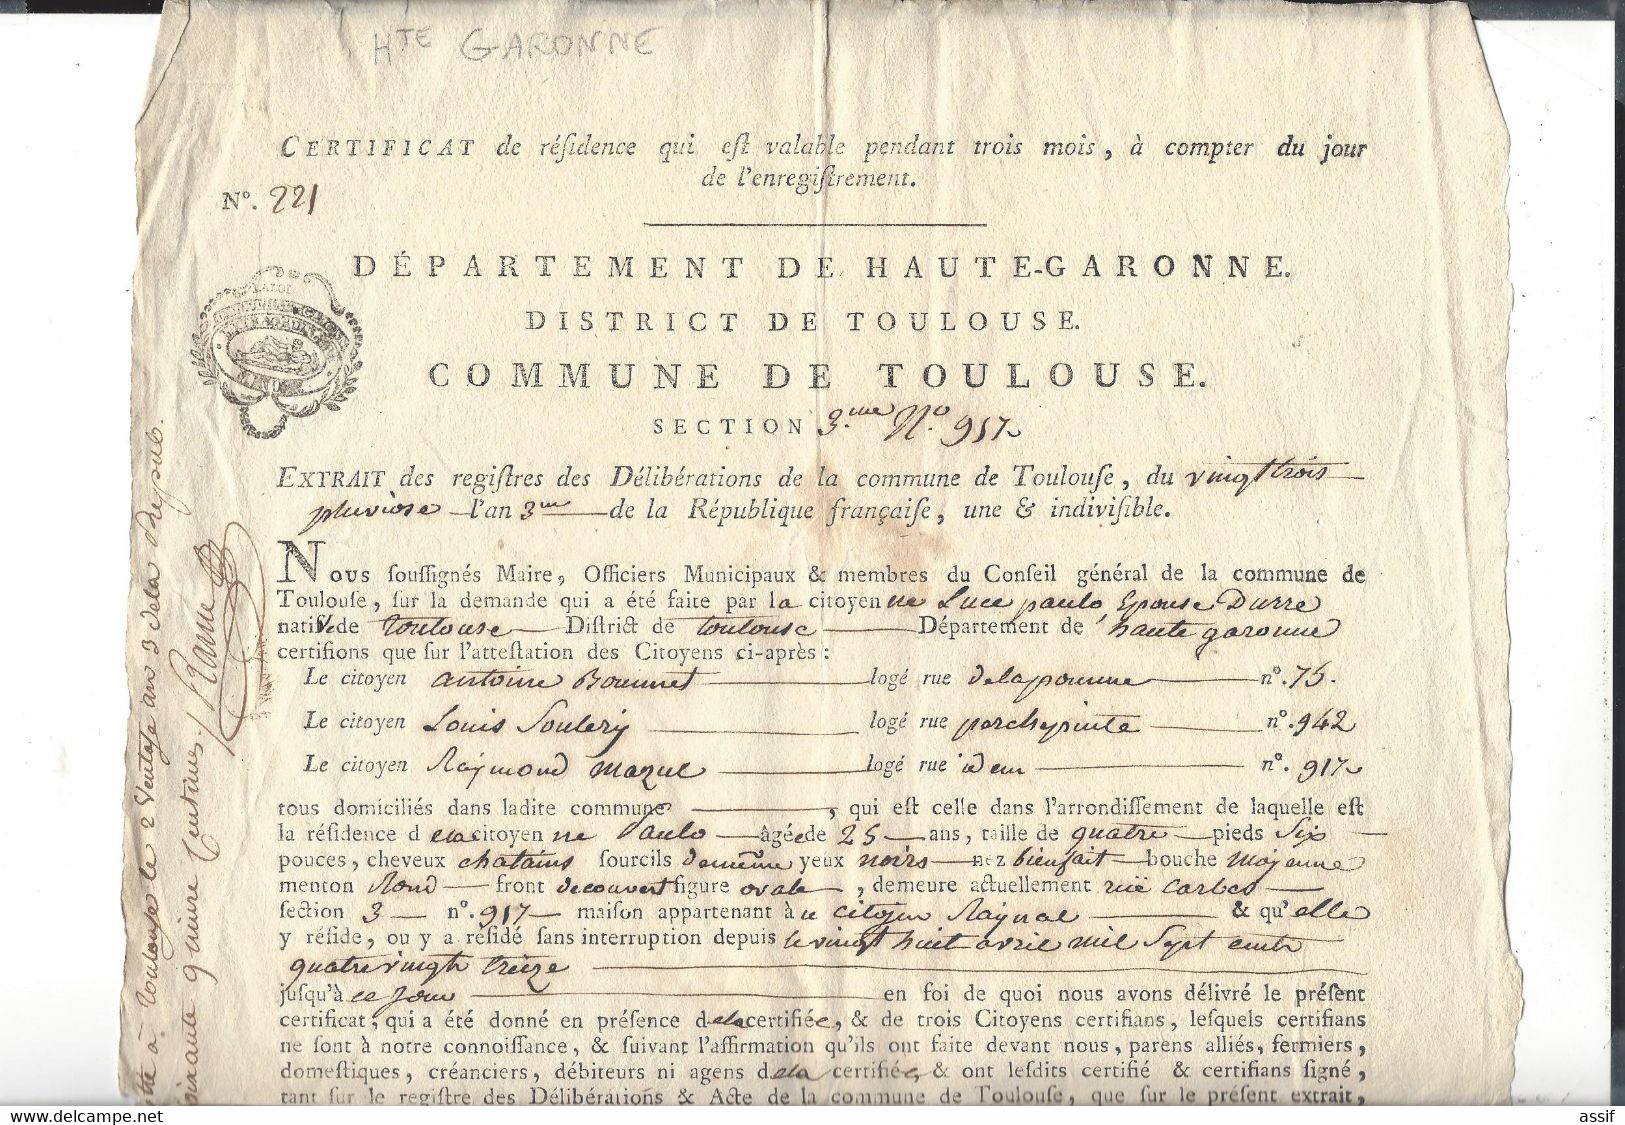 Hte GARONNE
CERTIFICAT de réſidence qui eſt valable pendant trois mois, à compter du jour
de l'enregiſtrement.
No. 221
DÉPARTEMENT DE HAUTE-GARONNE.
DISTRICT DE TOULOUSE.
COMMUNE DE TOULOUSE.
SECTION 3.me No. 917
EXTRAIT des regiſtres des Délibérations de la commune de Toulouſe, du vingt trois
pluviose l'an 3me de la République françaiſe, une & indiviſible.
NOUS ſouſſignés Maire, Officiers Municipaux & membres du Conſeil général de la commune de
Toulouſe, ſur la demande qui a été faite par la citoyenne Luce paulo Epouse Durre
native de toulouse Diſtrict de toulouse Département de haute garonne
certifions que ſur l'atteſtation des Citoyens ci-après :
Le citoyen antoine Bounnet logé rue delapomme no. 75.
Le citoyen Louis Soulery logé rue perchepinte no. 942
Le citoyen Raymond mazul logé rue idem no. 917
tous domiciliés dans ladite commune, qui eſt celle dans l'arrondiſſement de laquelle eſt
la réſidence de la citoyenne Paulo âgée de 25 ans, taille de quatre pieds Six
pouces, cheveux chatains ſourcils de meme yeux noirs nez bienfait bouche moyenne
menton Rond front decouvert figure ovale, demeure actuellement ruë
ſection 3 no. 917 maiſon appartenant à u citoyen Raynal & qu'elle
y réſide, ou y a réſidé ſans interruption depuis le vingt huit avril mil Sept cents
quatre vingts treize
juſqu'à ce jour en foi de quoi nous avons délivré le préſent
certificat, qui a été donné en préſence de la certifiée, & de trois Citoyens certifians, leſquels certifians
ne ſont à notre connoiſſance, & ſuivant l'affirmation qu'ils ont faite devant nous, parens alliés, fermiers,
domeſtiques, créanciers, débiteurs ni agens de la certifiée, & ont leſdits certifié & certifians ſigné,
tant ſur le regiſtre des Délibérations & Acte de la commune de Toulouſe, que ſur le préſent extrait,
à toulouse le 2 Ventose an 3 de la Repub.
quinze Centimes.
www.delcampe.net
assif